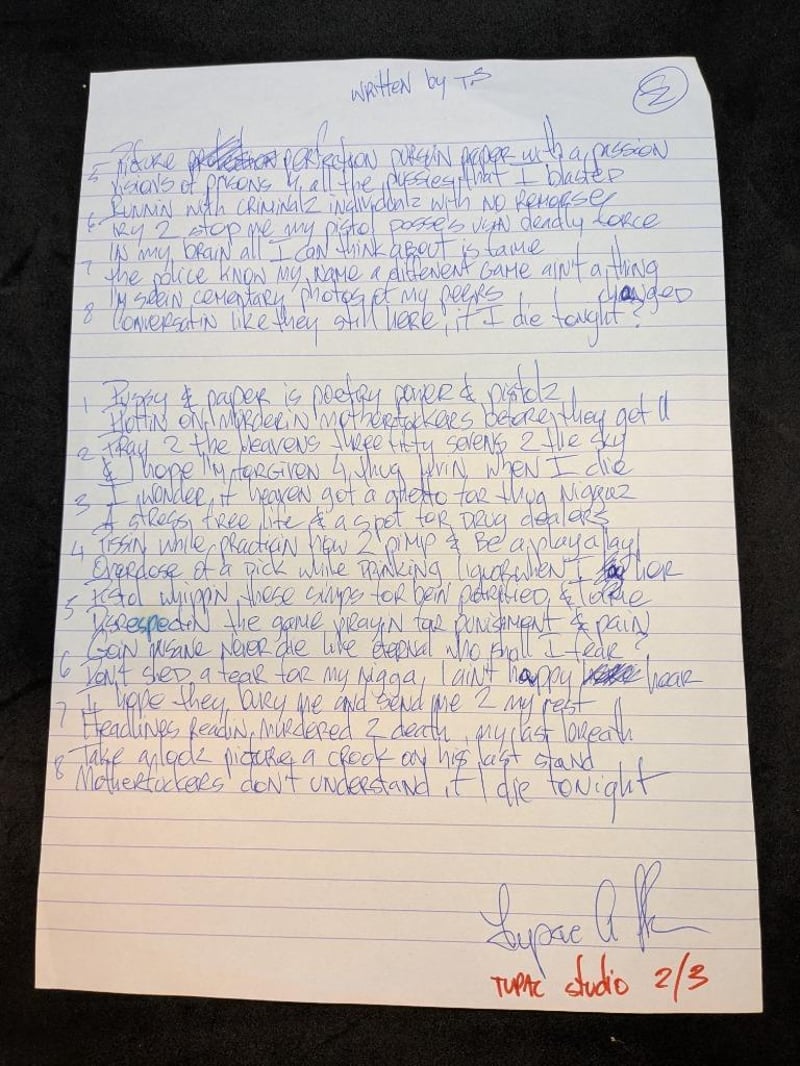 WRITTEN by TS
2
5 Picture perfection pursuin paper with a passion
Visions of prisons 4 all the pussies that I blasted
6 Runnin with criminalz individualz with no remorse
Try 2 stop me my pistol posse's usin deadly force
7 IN my brain all I can think about is fame
the police know my name a different Game ain't a thing
changed
8 I'm seein cementary photos of my peers
Conversatin like they still here, if I die tonight?
1 Pussy & paper is poetry power & pistolz
Plottin on murderin motherfuckers before they get U
2 Pray 2 the heavens three fifty sevens 2 the sky
& I hope I'm forgiven 4 thug livin when I die
3 I wonder if heaven got a ghetto for thug Niggaz
A stress free life & a spot for DRUG dealers
4 Pissin while practicin how 2 pimp & Be a playa
Overdose of a Dick while DRINKING liquor when I
5 Pistol whippin these simps for bein petrified &
Disrespectin the game prayin for punishment & pain
Goin insane never die like eternal who shall I fear?
6 Don't shed a tear for my nigga, I ain't happy hear
I hope they bury me and send me 2 my rest
7 Headlines readin murdered 2 death, my last breath
8 Take a look picture a crook on his last stand
Motherfuckers don't understand if I die tonight
TUPAC studio 2/3